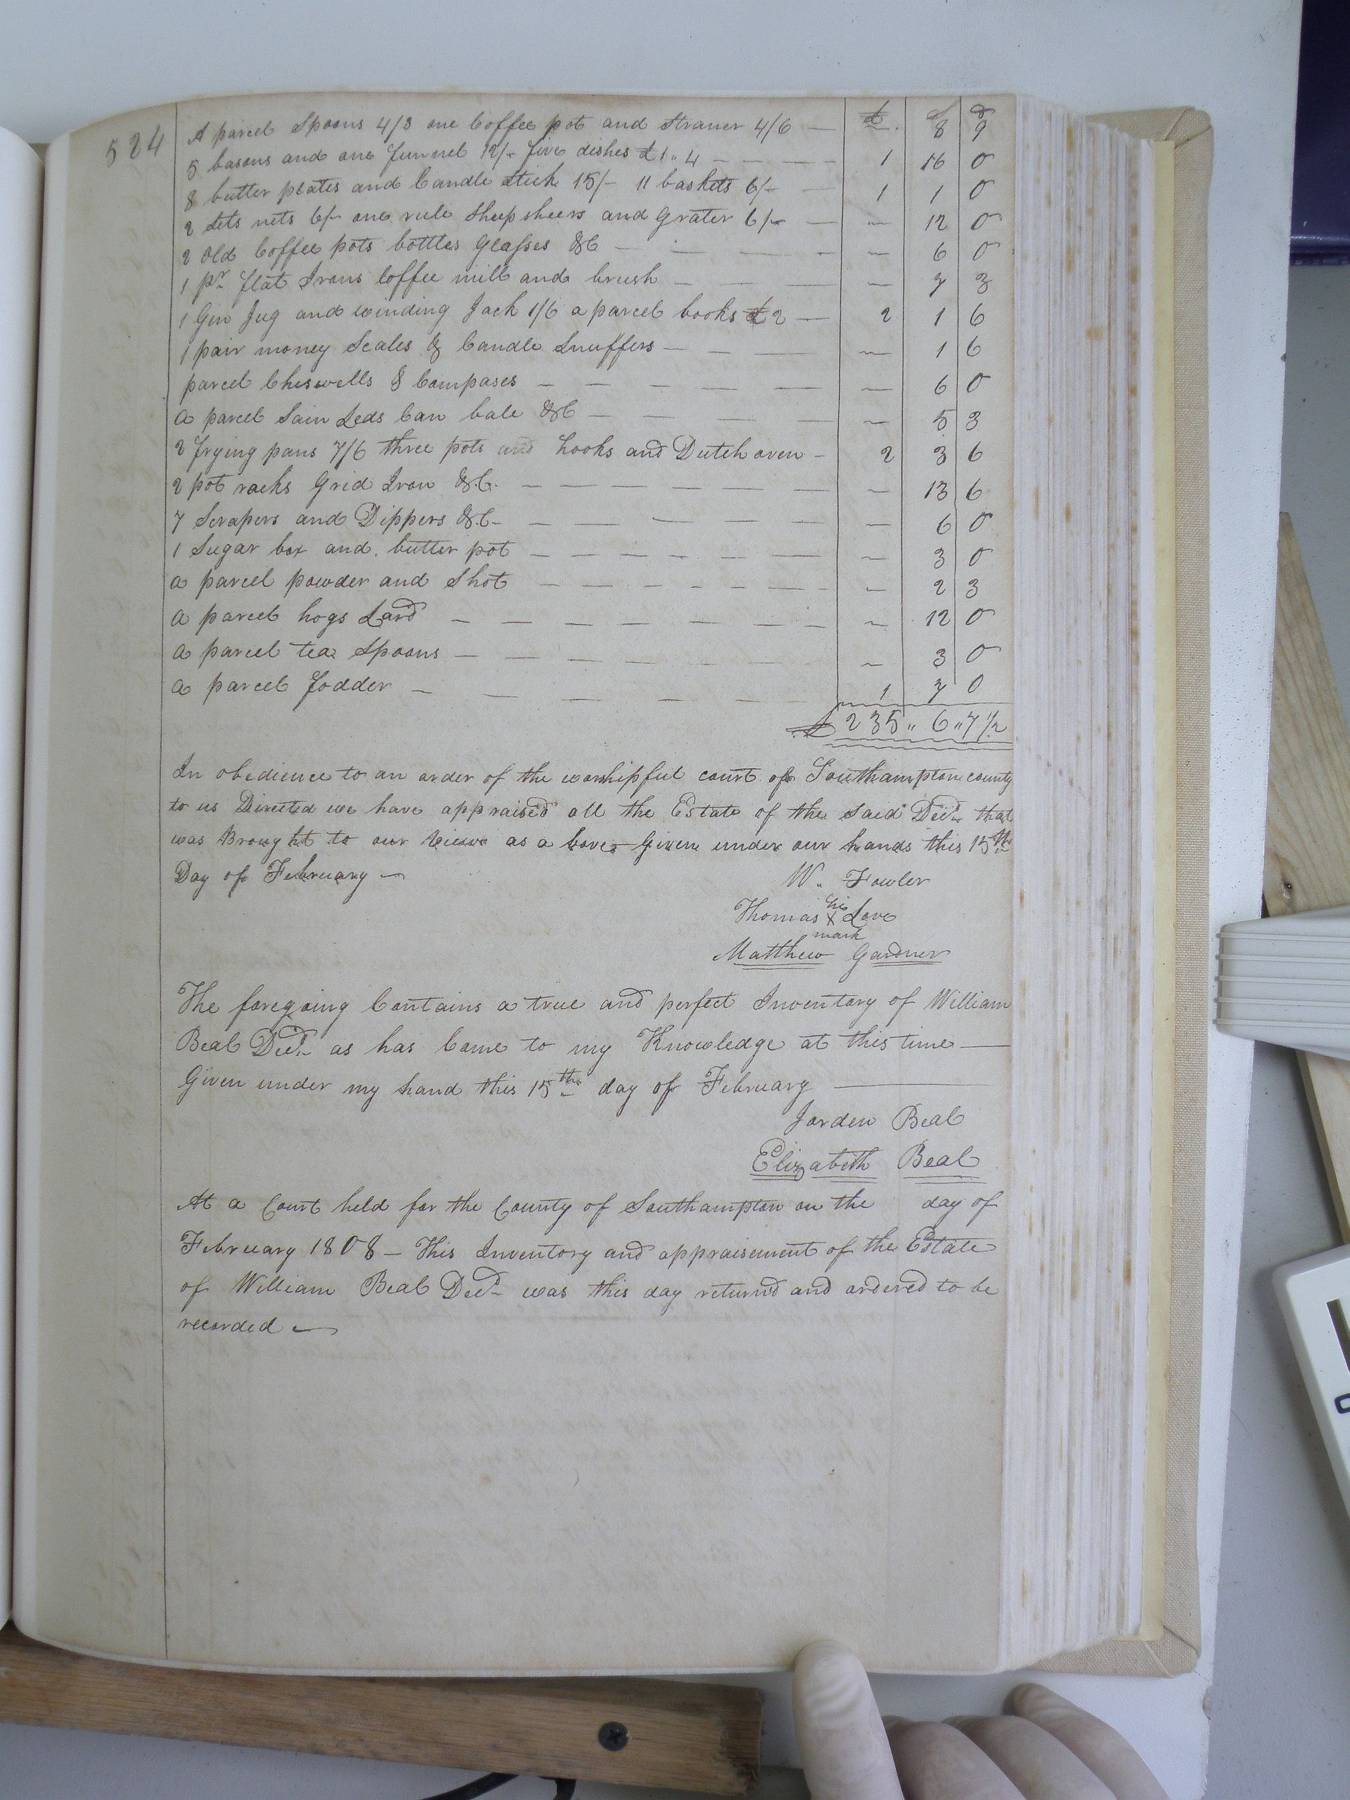 524
£ S d
A parcel Spoons 4/3 one Coffee pot and Straner 4/6 — ~ . 8 9
5 basons and one funnel 12/- five dishes £1.. 4 — 1 16 0
8 butter plates and Candle Stick 15/- 11 baskets 6/- — 1 1 0
2 Sets nets 6/- one rule Sheep sheers and Grater 6/- — ~ 12 0
2 Old Coffee pots bottles Glasses &C — ~ 6 0
1 pr flat Irons Coffee mill and brush — ~ 7 3
1 Gin Jug and winding Jack 1/6 a parcel books £2 — 2 1 6
1 pair money Scales & Candle Snuffers — ~ 1 6
parcel Chiswells & Compases — ~ 6 0
a parcel Sain Leds Can bale &C — ~ 5 3
2 frying pans 7/6 three pots and hooks and Dutch oven — 2 3 6
2 pot racks Grid Iron &C. — ~ 13 6
7 Scrapers and Dippers &C — ~ 6 0
1 Sugar box and butter pot — ~ 3 0
a parcel powder and Shot — ~ 2 3
a parcel hogs Lard — ~ 12 0
a parcel tea Spoons — ~ 3 0
a parcel fodder — 1 7 0
£ 235 .. 6 .. 7 1/2
In obedience to an order of the worshipful court of Southampton county
to us Directed we have appraised all the Estate of the said Decd that
was Brought to our Views as a bove Given under our hands this 15th
Day of February —
W. Fowler
Thomas his X mark Love
Matthew Gardner
The foregoing Contains a true and perfect Inventory of William
Beal Decd as has Came to my Knowledge at this time —
Given under my hand this 15th day of February —
Jorden Beal
Elizabeth Beal
At a Court held for the County of Southampton on the day of
February 1808 — This Inventory and appraisement of the Estate
of William Beal Decd was this day returnd and ordered to be
recorded —